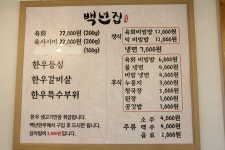 백년집
육회 22,000원 (200g)
육사시미 22,000원 (200g)
(300g)
한우등심
한우갈비살
한우특수부위
한우 생고기만을 취급합니다.
백년한우에서 구입 후 드시면 됩니다.
상차림비
정식
육회비빔밥 12,000원
떡 비빔밥 12,000원
냉면 7,000원
후식
육회비빔밥 6,000원
물 냉면
비빔 냉면
누룽지 3,000원
청국장 3,000원
된장
공깃밥 1,000원
주류
소주 4,000원
맥주 4,000원
음료 2,000원